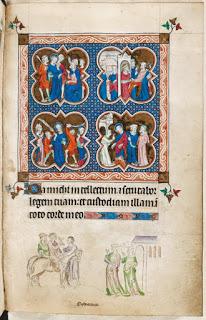 Da michi intellectum ⁊ scrutabor
legem tuam: et custodiam illam i
toto corde meo